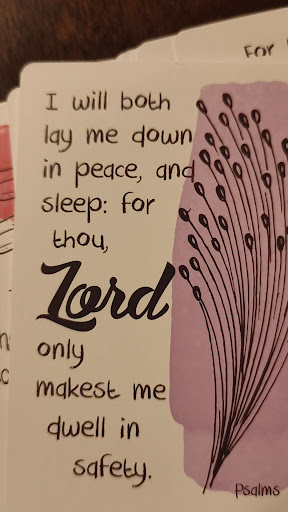 For
I will both
lay me down
in peace, and
sleep: for
thou,
Lord
only
makest me
dwell in
safety.
Psalms